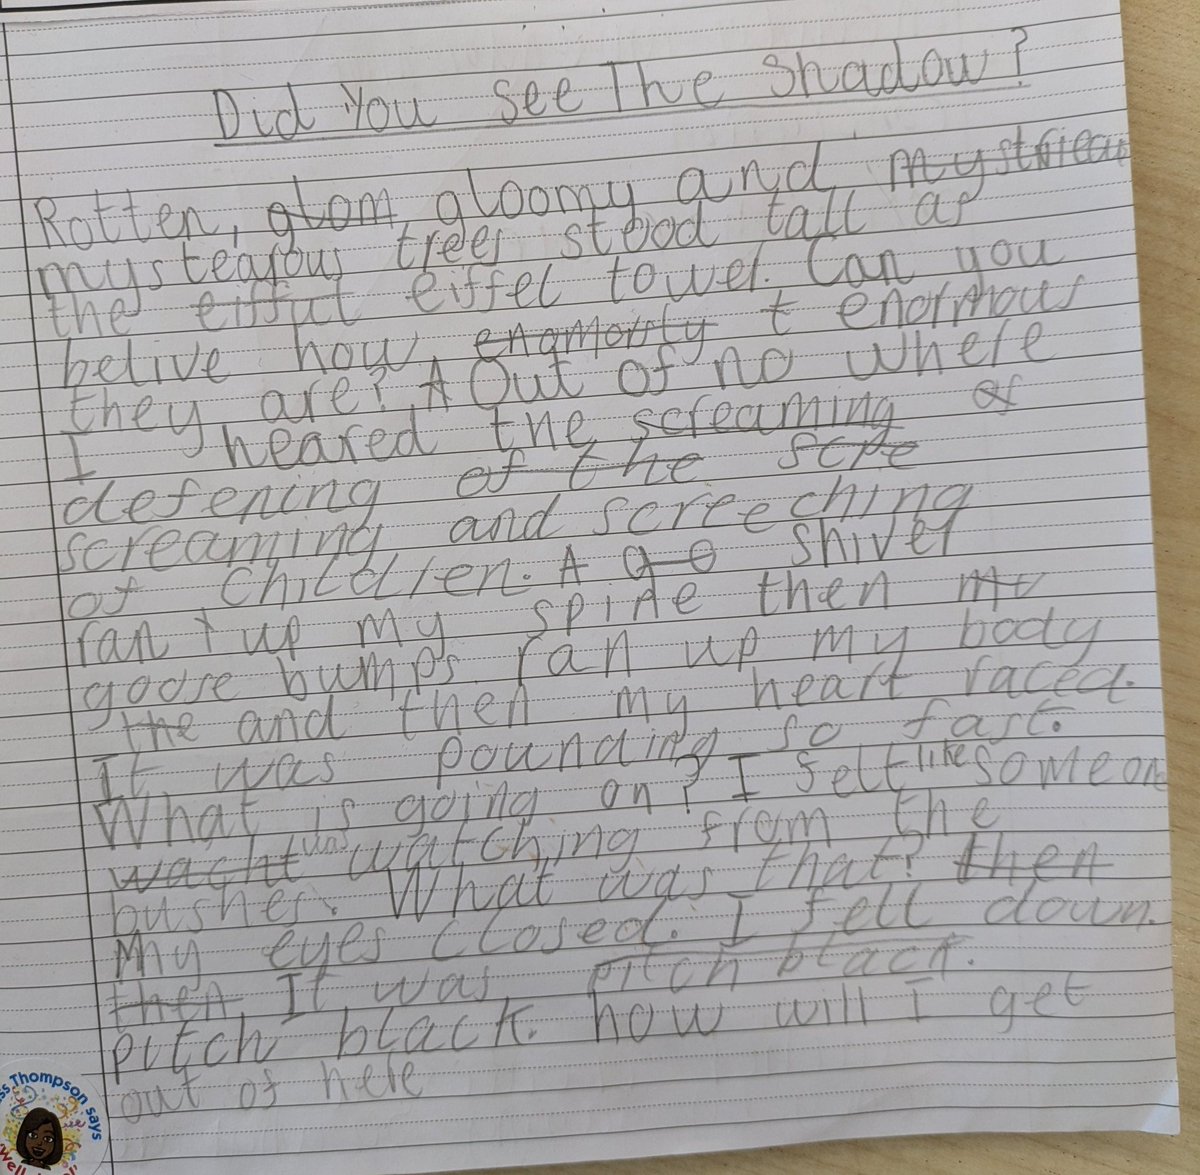 Did You See The Shadow?
Rotten, glom gloomy and mystrieous
mystearous trees stood tall as
the eiffut eiffel tower. Can you
belive how enamously t enormous
they are? A Out of no where
I heared the screaming of
defening of the scre
screaming and screeching
of children. A go shiver
ran t up my spine then my
goose bumps ran up my body
the and then my heart raced.
It was pounding so fast.
What is going on? I felt like someone
wacht was watching from the
bushes. What was that? then
My eyes closed. I fell down.
then It was pitch black.
pitch black. how will I get
out of here
ss Thompson says